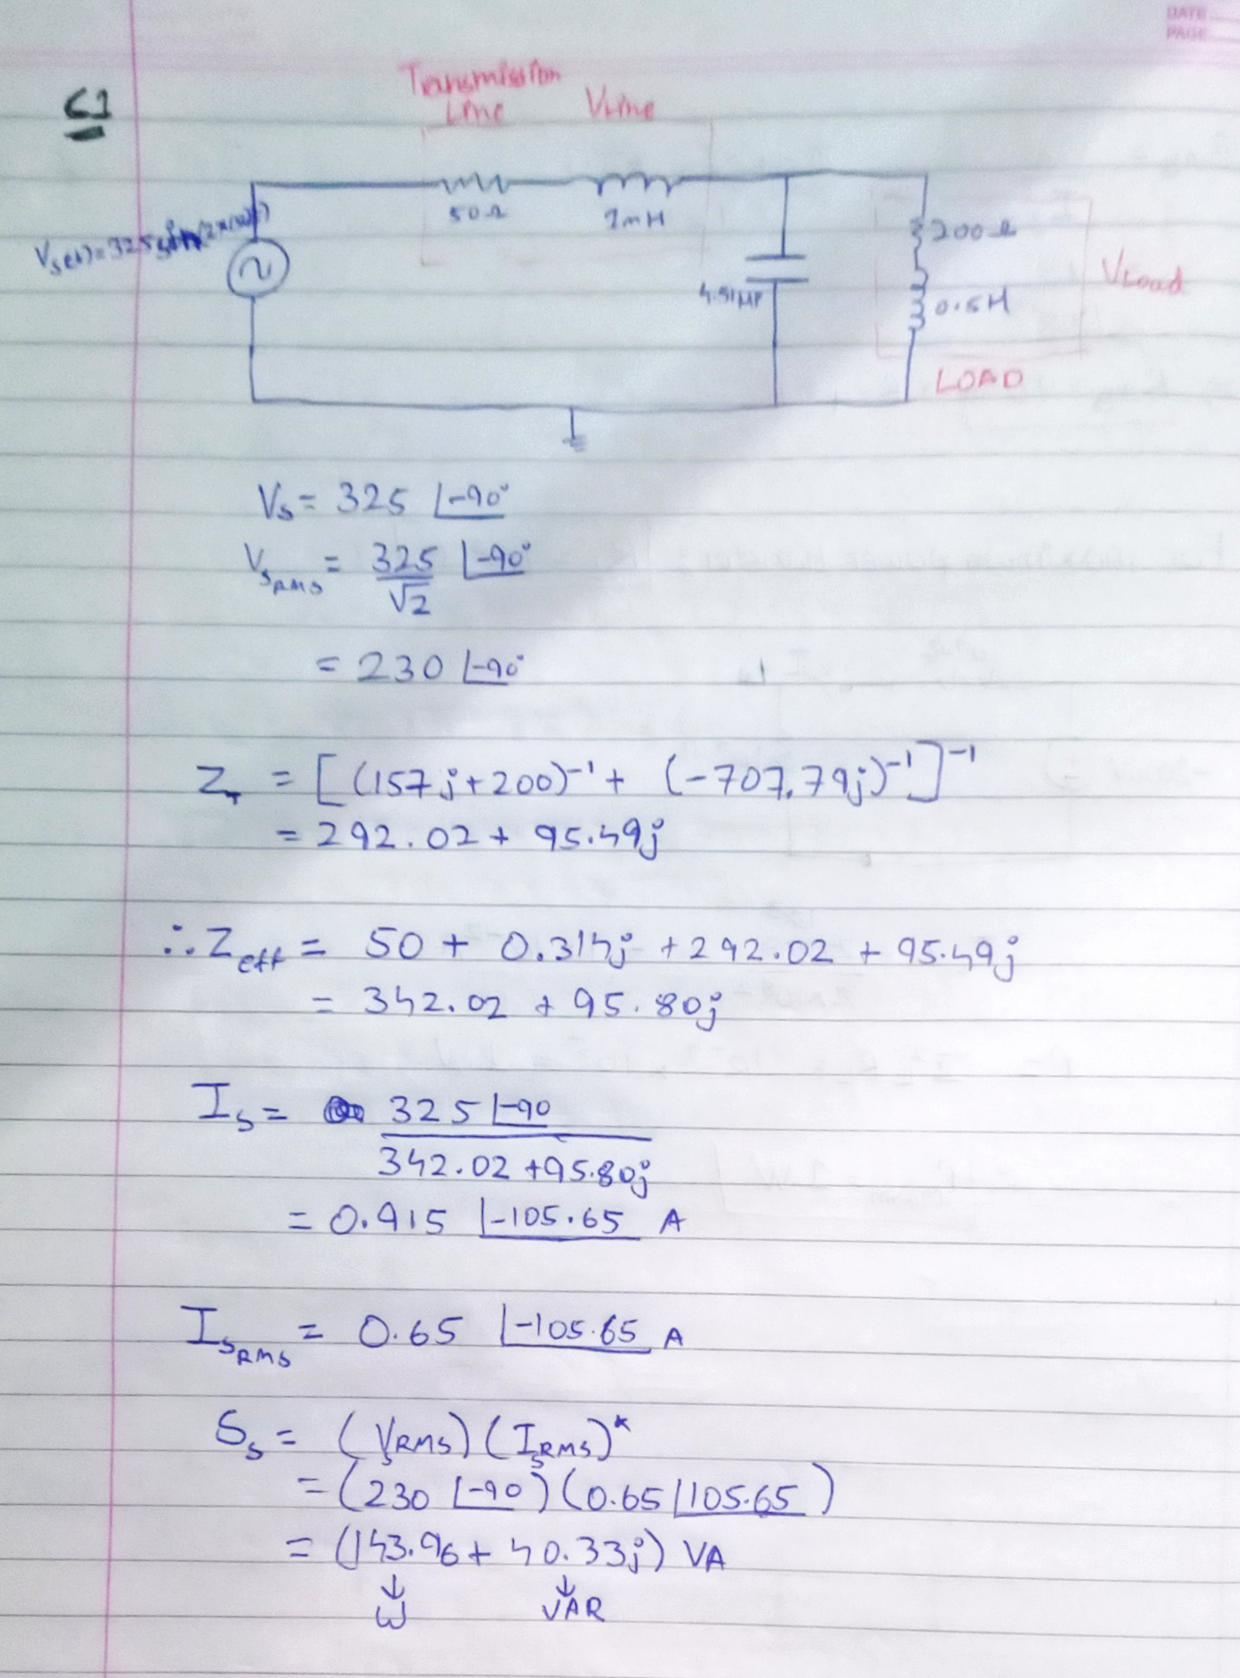 DATE
PAGE
C1
Transmission
Line VLine
50Ω 1mH
Vs(t)=325sin(2π(50)t)
200Ω
4.51µF 0.5H
VLoad
LOAD
Vs = 325 ∠-90°
VsRMS = 325/√2 ∠-90°
= 230 ∠-90°
ZT = [(157j+200)⁻¹ + (-707.79j)⁻¹]⁻¹
= 292.02 + 95.49j
∴ Zeff = 50 + 0.314j + 292.02 + 95.49j
= 342.02 + 95.80j
Is = 325∠-90 / 342.02 + 95.80j
= 0.915 ∠-105.65 A
IsRMS = 0.65 ∠-105.65 A
Ss = (VsRMS) (IsRMS)*
= (230 ∠-90) (0.65 ∠105.65)
= (143.96 + 40.33j) VA
↓ ↓
W VAR